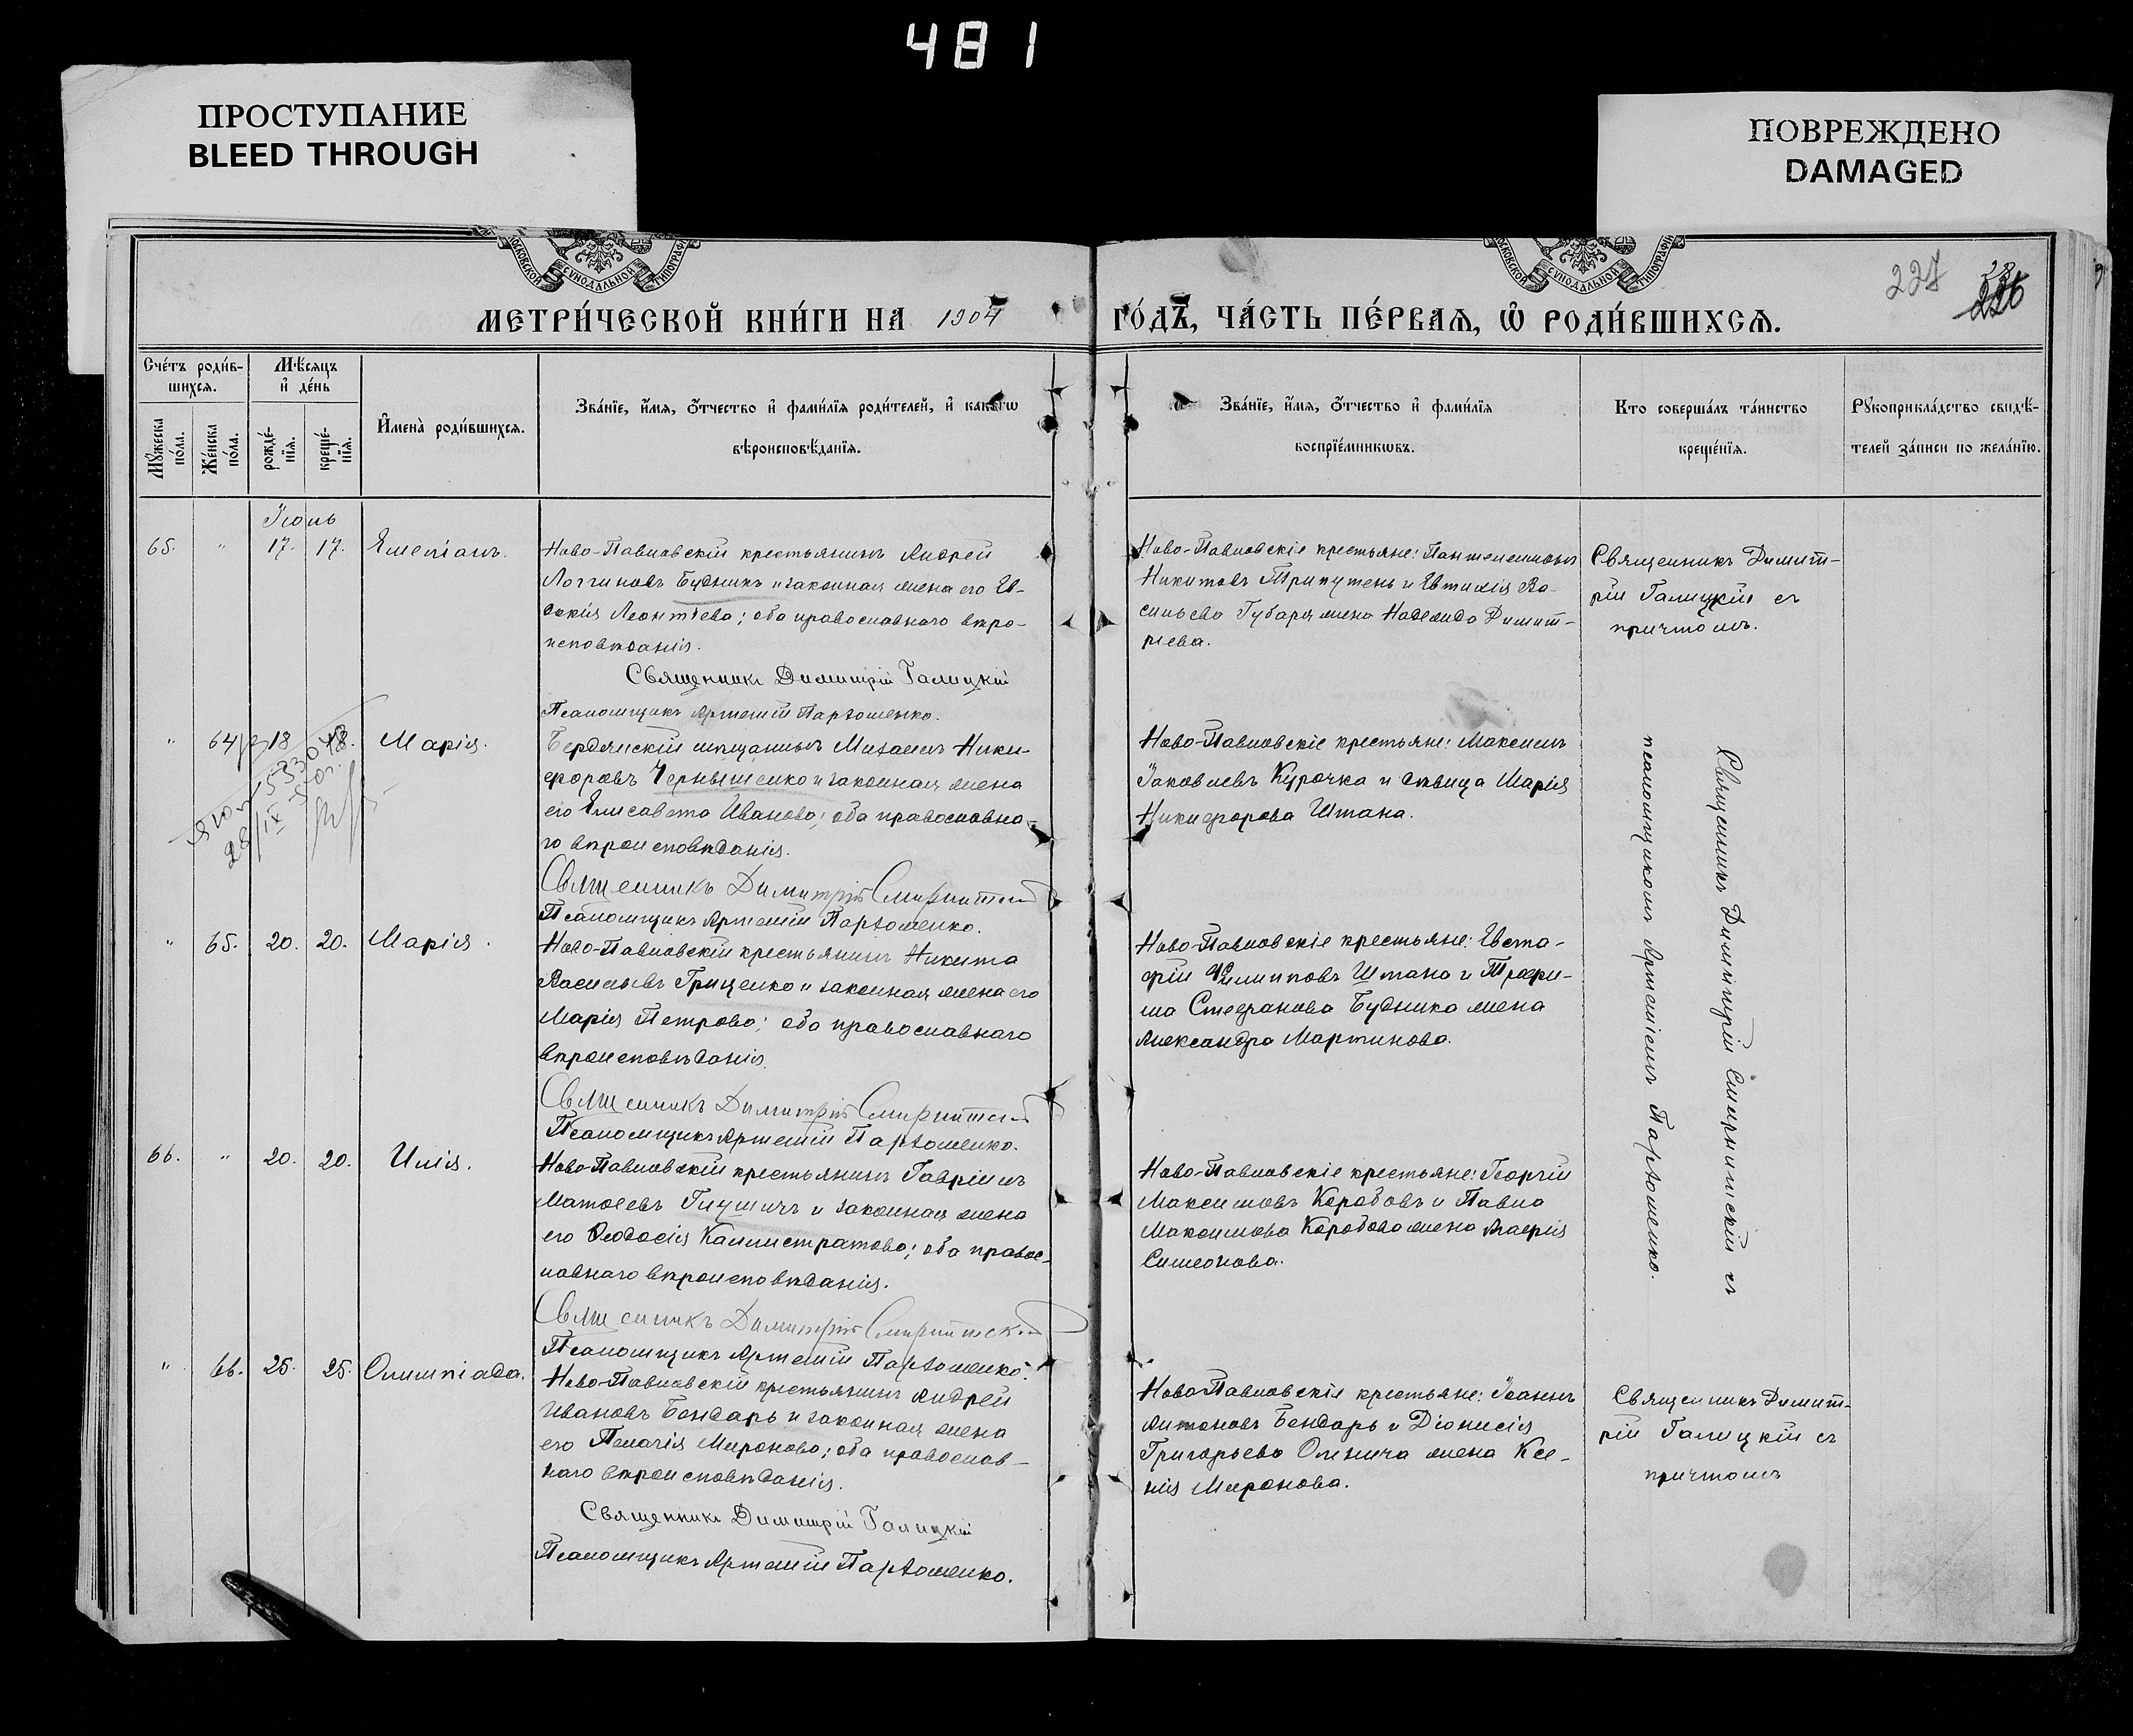 481
ПРОСТУПАНИЕ
BLEED THROUGH
ПОВРЕЖДЕНО
DAMAGED
МОСКОВСКОЙ СѴНОДАЛЬНОЙ ТИПОГРАФІИ
СѴНОДАЛЬНОЙ ТИПОГРАФІИ
227
226
МЕТРИ́ЧЕСКОЙ КНИ́ГИ НА 1904 ГО́ДЪ, ЧА́СТЬ ПЕ́РВАЯ, Ѡ РОДИ́ВШИХСЯ.
Сче́тъ роди́в-
шихся.
Мѣ́сяцъ
и҆ де́нь
Мꙋ́жеска по́ла.
Же́нска по́ла.
рожде́-нїя.
креще́-нїя.
И҆мена̀ роди́вшихся.
Зва́нїе, и҆́мя, ѻ҆́тчество и҆ фами́лїя роди́телей, и҆ како́гѡ
вѣроисповѣ́данїя.
Зва́нїе, и҆́мя, ѻ҆́тчество и҆ фами́лїя
воспрїе́мникѡвъ.
Кто соверша́лъ та́инство
креще́нїя.
Рꙋкоприкла́дство свидѣ́-
телей за́писи по жела́нїю.
Іюнь
65. " 17. 17. Емеліанъ.
Ново-Павловскій крестьянинъ Андрей
Логгиновъ Будникъ и законная жена его Ев-
докія Леонтіева; оба православнаго вѣро-
исповѣданія.
Священникъ Димитрій Галицкій
Псаломщикъ Артемій Пархоменко.
Ново-Павловскіе крестьяне: Пантелеимонъ
Никитовъ Трипутень и Евтихія Ва-
сильева Губаря жена Надежда Димит-
ріева.
Священникъ Димит-
рій Галицкій съ
причтомъ.
" 64 18 18. Марія.
28/IX
Бердянскій мѣщанинъ Михаилъ Ники-
форовъ Чернышенко и законная жена
его Елисавета Иванова; оба православна-
го вѣроисповѣданія.
Священникъ Димитрій
Псаломщикъ Артемій Пархоменко.
Ново-Павловскіе крестьяне: Максимъ
Іаковлевъ Курочка и дѣвица Марія
Никифорова Штана.
Священникъ Димитрій съ
псаломщикомъ Артеміемъ Пархоменко.
" 65. 20. 20. Марія.
Ново-Павловскій крестьянинъ Никита
Васильевъ Гриценко и законная жена его
Марія Петрова; оба православнаго
вѣроисповѣданія.
Священникъ Димитрій
Псаломщикъ Артемій Пархоменко.
Ново-Павловскіе крестьяне: Евста-
фій Филипповъ Штана и Трофи-
ма Стефанова Будника жена
Александра Мартинова.
66. " 20. 20. Илія.
Ново-Павловскій крестьянинъ Гавріилъ
Матѳеевъ и законная жена
его Ѳеодосія Каллистратова; оба правос-
лавнаго вѣроисповѣданія.
Священникъ Димитрій
Псаломщикъ Артемій Пархоменко.
Ново-Павловскіе крестьяне: Георгій
Максимовъ Коробовъ и Павла
Максимова Коробова жена Марія
Симеонова.
" 66. 25. 25. Олимпіада.
Ново-Павловскій крестьянинъ Андрей
Ивановъ Бондарь и законная жена
его Пелагія Миронова; оба православ-
наго вѣроисповѣданія.
Священникъ Димитрій Галицкій
Псаломщикъ Артемій Пархоменко.
Ново-Павловскіе крестьяне: Іоаннъ
Антоновъ Бондарь и Діонисія
Григорьева жена Ксе-
нія Миронова.
Священникъ Димит-
рій Галицкій съ
причтомъ